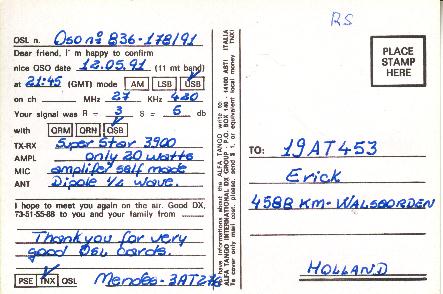 RS
QSL n. QSO nº 836-178/91
Dear friend, I'm happy to confirm
nice QSO date 12.05.91 (11 mt band)
at 21:45 (GMT) mode AM LSB USB
on ch MHz 27 KHz 480
Your signal was R = 3 S = 5 db
with QRM QRN QSB
TX-RX Super Star 3900
AMPL only 20 watts
MIC amplifer self made
ANT Dipole 1/2 wave.
I hope to meet you again on the air. Good DX,
73-51-55-88 to you and your family from
Thank you for very
good QSL cards.
PSE TNX QSL Mendes-3AT
To have informations about the ALFA TANGO write to
ALFA TANGO INTERNATIONAL DX GROUP - P.O. BOX 140 - 14100 ASTI ITALIA
To cover only mail cost, please, send $ 1, or equivalent local money
PLACE
STAMP
HERE
TO: 19AT453
Erick
4588 KM-WALSOORDEN
HOLLAND